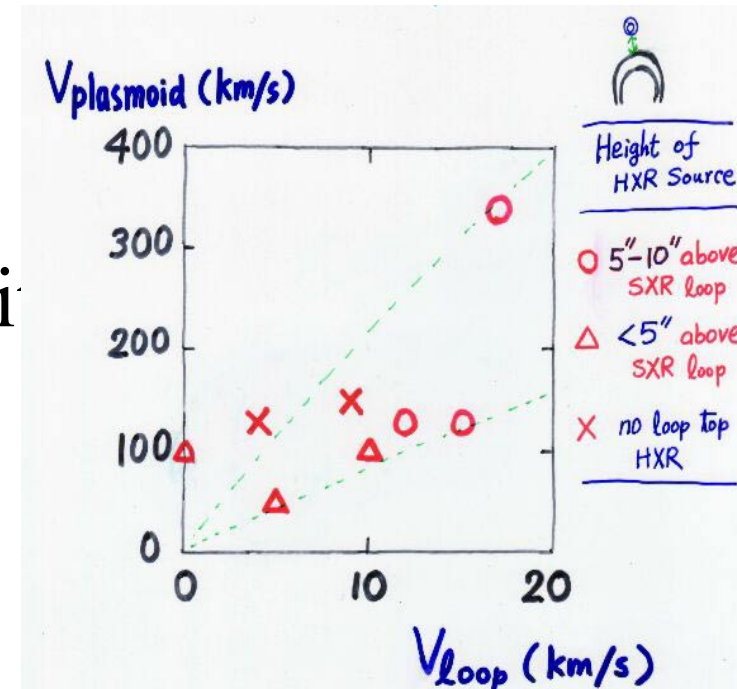 Vplasmoid (km/s)
400
300
200
100
0
0 10 20
Vloop (km/s)
Height of
HXR Source
5"-10" above
SXR loop
<5" above
SXR loop
no loop top
HXR